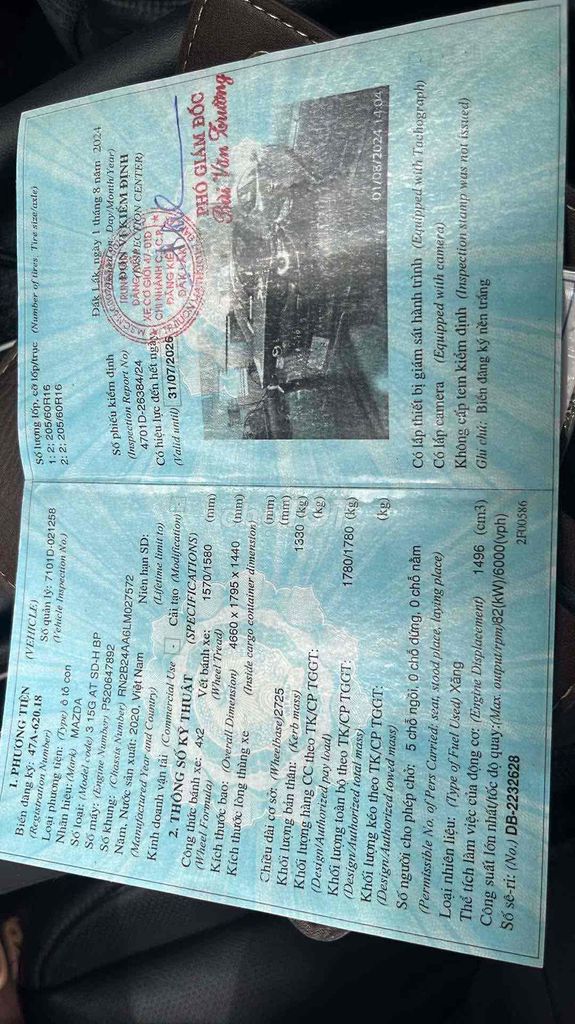 1. PHƯƠNG TIỆN (VEHICLE)
Biển đăng ký: 47A-620.18 Số quản lý: 7101D-021258
(Registration Number) (Vehicle Inspection No.)
Loại phương tiện: (Type) ô tô con
Nhãn hiệu: (Mark) MAZDA
Số loại: (Model code) 3 15G AT SD-H BP
Số máy: (Engine Number) P520647892
Số khung: (Chassis Number) RN2B24AA6LM027572
Năm, Nước sản xuất: 2020, Việt Nam Niên hạn SD:
(Manufactured Year and Country) (Lifetime limit to)
Kinh doanh vận tải (Commercial Use) - Cải tạo (Modification) -
2. THÔNG SỐ KỸ THUẬT (SPECIFICATIONS)
Công thức bánh xe: 4x2 Vết bánh xe: 1570/1580 (mm)
(Wheel Formula) (Wheel Tread)
Kích thước bao: (Overall Dimension) 4660 x 1795 x 1440 (mm)
Kích thước lòng thùng xe (Inside cargo container dimension)
(mm)
Chiều dài cơ sở: (Wheelbase) 2725 (mm)
Khối lượng bản thân: (Kerb mass) 1330 (kg)
Khối lượng hàng CC theo TK/CP TGGT: (kg)
(Design/Authorized pay load)
Khối lượng toàn bộ theo TK/CP TGGT: 1780/1780 (kg)
(Design/Authorized total mass)
Khối lượng kéo theo TK/CP TGGT: (kg)
(Design/Authorized towed mass)
Số người cho phép chở: 5 chỗ ngồi, 0 chỗ đứng, 0 chỗ nằm
(Permissible No. of Pers Carried: seat, stood place, laying place)
Loại nhiên liệu: (Type of Fuel Used) Xăng
Thể tích làm việc của động cơ: (Engine Displacement) 1496 (cm3)
Công suất lớn nhất/tốc độ quay:(Max. output/rpm)82(kW)/6000(vph)
Số sê-ri: (No.) DB-2232628 2F00586
Số lượng lốp, cỡ lốp/trục (Number of tires. Tire size/axle)
1: 2; 205/60R16
2: 2; 205/60R16
Đắk Lắk, ngày 1 tháng 8 năm 2024
Day/Month/Year)
Số phiếu kiểm định ĐƠN VỊ KIỂM ĐỊNH
(Inspection Report No) (INSPECTION CENTER)
4701D-26384/24
Có hiệu lực đến hết ngày
(Valid until) 31/07/2026
TRUNG TÂM
ĐĂNG KIỂM
XE CƠ GIỚI 47.01D
CHI NHÁNH
ĐĂNG KIỂM
ĐẮK LẮK
PHÓ GIÁM ĐỐC
Bùi Văn Trường
01/08/2024 14:04
Có lắp thiết bị giám sát hành trình (Equipped with Tachograph)
Có lắp camera (Equipped with camera)
Không cấp tem kiểm định (Inspection stamp was not issued)
Ghi chú: Biển đăng ký nền trắng